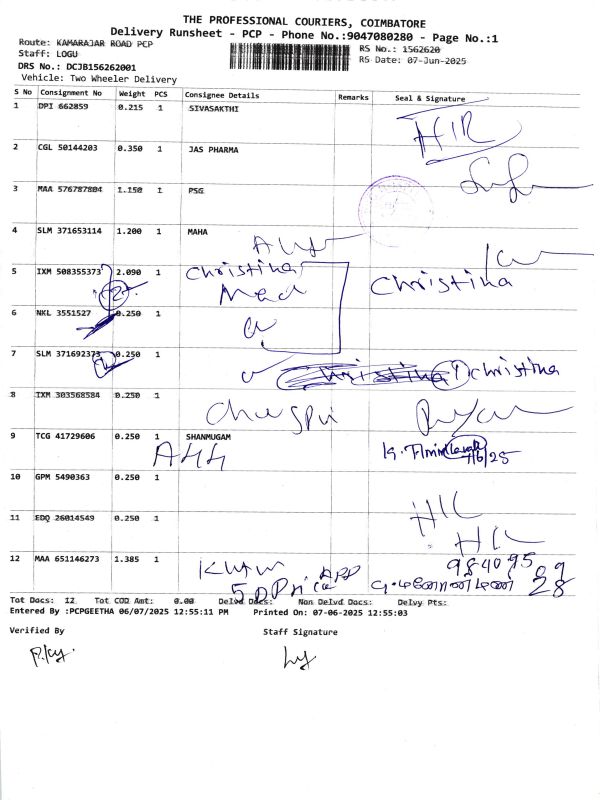 THE PROFESSIONAL COURIERS, COIMBATORE
Delivery Runsheet - PCP - Phone No.:9047080280 - Page No.:1
Route: KAMARAJAR ROAD PCP
RS No.: 1562620
Staff: LOGU
RS Date: 07-Jun-2025
DRS No.: DCJB156262001
Vehicle: Two Wheeler Delivery
S No Consignment No Weight PCS Consignee Details Remarks Seal & Signature
1 DPI 662859 0.215 1 SIVASAKTHI
HIR
2 CGL 50144203 0.350 1 JAS PHARMA
3 MAA 576787804 1.150 1 PSG
4 SLM 371653114 1.200 1 MAHA
5 IXM 508355373 2.090 1 Christina Christina
2
6 NKL 3551527 0.250 1
7 SLM 371692373 0.250 1
Christina 1 Christina
8 IXM 303568584 0.250 1
9 TCG 41729606 0.250 1 SHANMUGAM
7/6/25
10 GPM 5490363 0.250 1
11 EDQ 26014549 0.250 1
12 MAA 651146273 1.385 1
984095
Tot Docs: 12 Tot COD Amt: 0.00 Delvd Docs: Non Delvd Docs: Delvy Pts:
Entered By :PCPGEETHA 06/07/2025 12:55:11 PM Printed On: 07-06-2025 12:55:03
Verified By Staff Signature